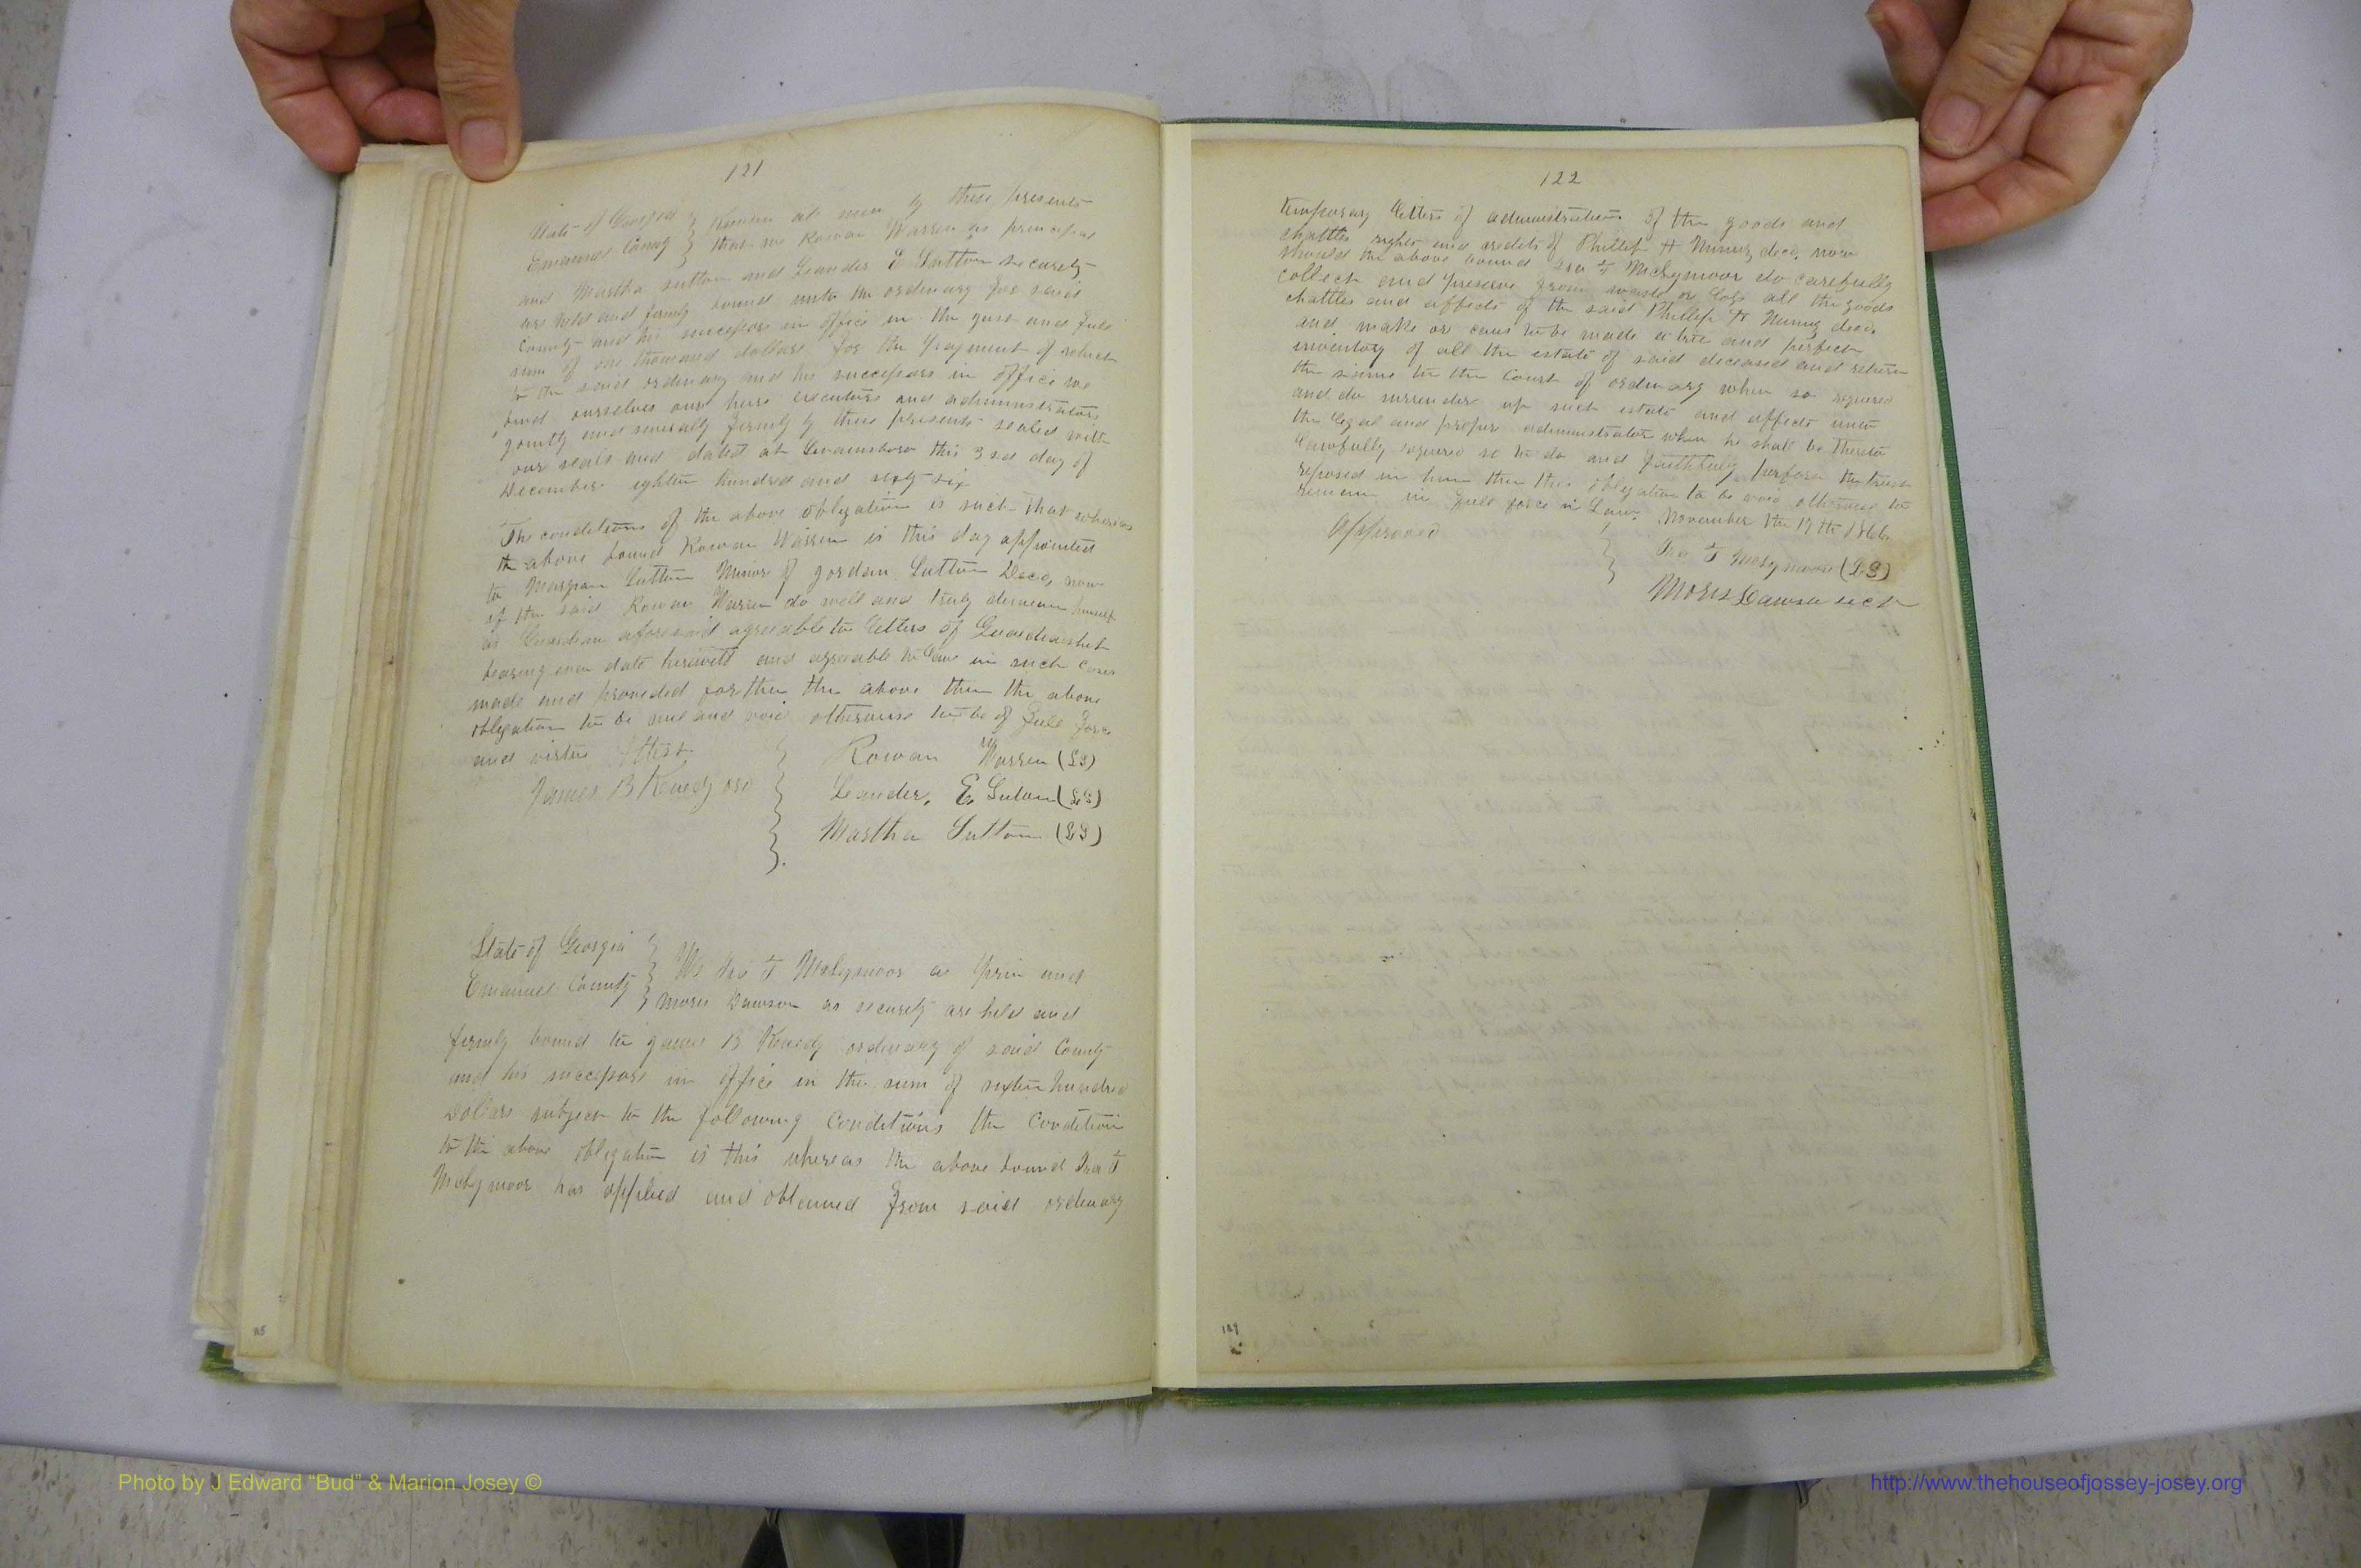 121
State of Georgia } Known all men by these presents
Emanuel County } that we Rowan Warren as principal
and Martha Sutton and Leander E Sutton security
are held and firmly bound unto the ordinary for said
County and his successors in office in the just and full
sum of one thousand dollars for the payment of which
to the said ordinary and his successors in office we
bind ourselves our heirs executors and administrators
jointly and severally firmly by these presents sealed with
our seals and dated at Swainsboro this 3rd day of
December eighteen hundred and sixty six
The conditions of the above obligation is such that whereas
the above bound Rowan Warren is this day appointed
to Margian Sutton Minor of Jordan Sutton Decd, now
if the said Rowan Warren do well and truly demean himself
as Guardian aforesaid agreeable to letters of Guardianship
bearing even date herewith and agreeable to law in such cases
made and provided for then the above then the above
obligation to be null and void otherwise to be of full force
and virtue Attest
James B Kenedy ord
Rowan Warren (LS)
Leander, E. Suton (LS)
Martha Sutton (LS)
State of Georgia } We Ira T McLymoor as prin and
Emanuel County } Moris Lawson as security are held and
firmly bound to James B Kenedy ordinary of said County
and his successors in office in the sum of sixteen hundred
Dollars subject to the following Conditions the Condition
to the above obligation is this whereas the above bound Ira T
McLymoor has applied and obtained from said ordinary
115
122
temporary letters of administration of the goods and
chattles rights and credits of Phillip H Nunnz decd, now
should the above bound Ira T McLymoor do carefully
collect and preserve from waste or loss all the goods
chattles and affects of the said Phillip H Nunnz decd,
and make or caus to be made a true and perfect
inventory of all the estate of said deceased and return
the same to the Court of ordinary when so required
and do surrender up such estate and affects unto
the legal and proper administrator when he shall be thereto
lawfully required so to do and faithfuly perform the trust
reposed in him then this obligation to be void otherwise to
remain in full force in Law. November the 17th 1866
Approved
Ira T McLymoor (LS)
Moris Lawson sect
129
Photo by J Edward “Bud” & Marion Josey ©
http://www.thehouseofjossey-josey.org